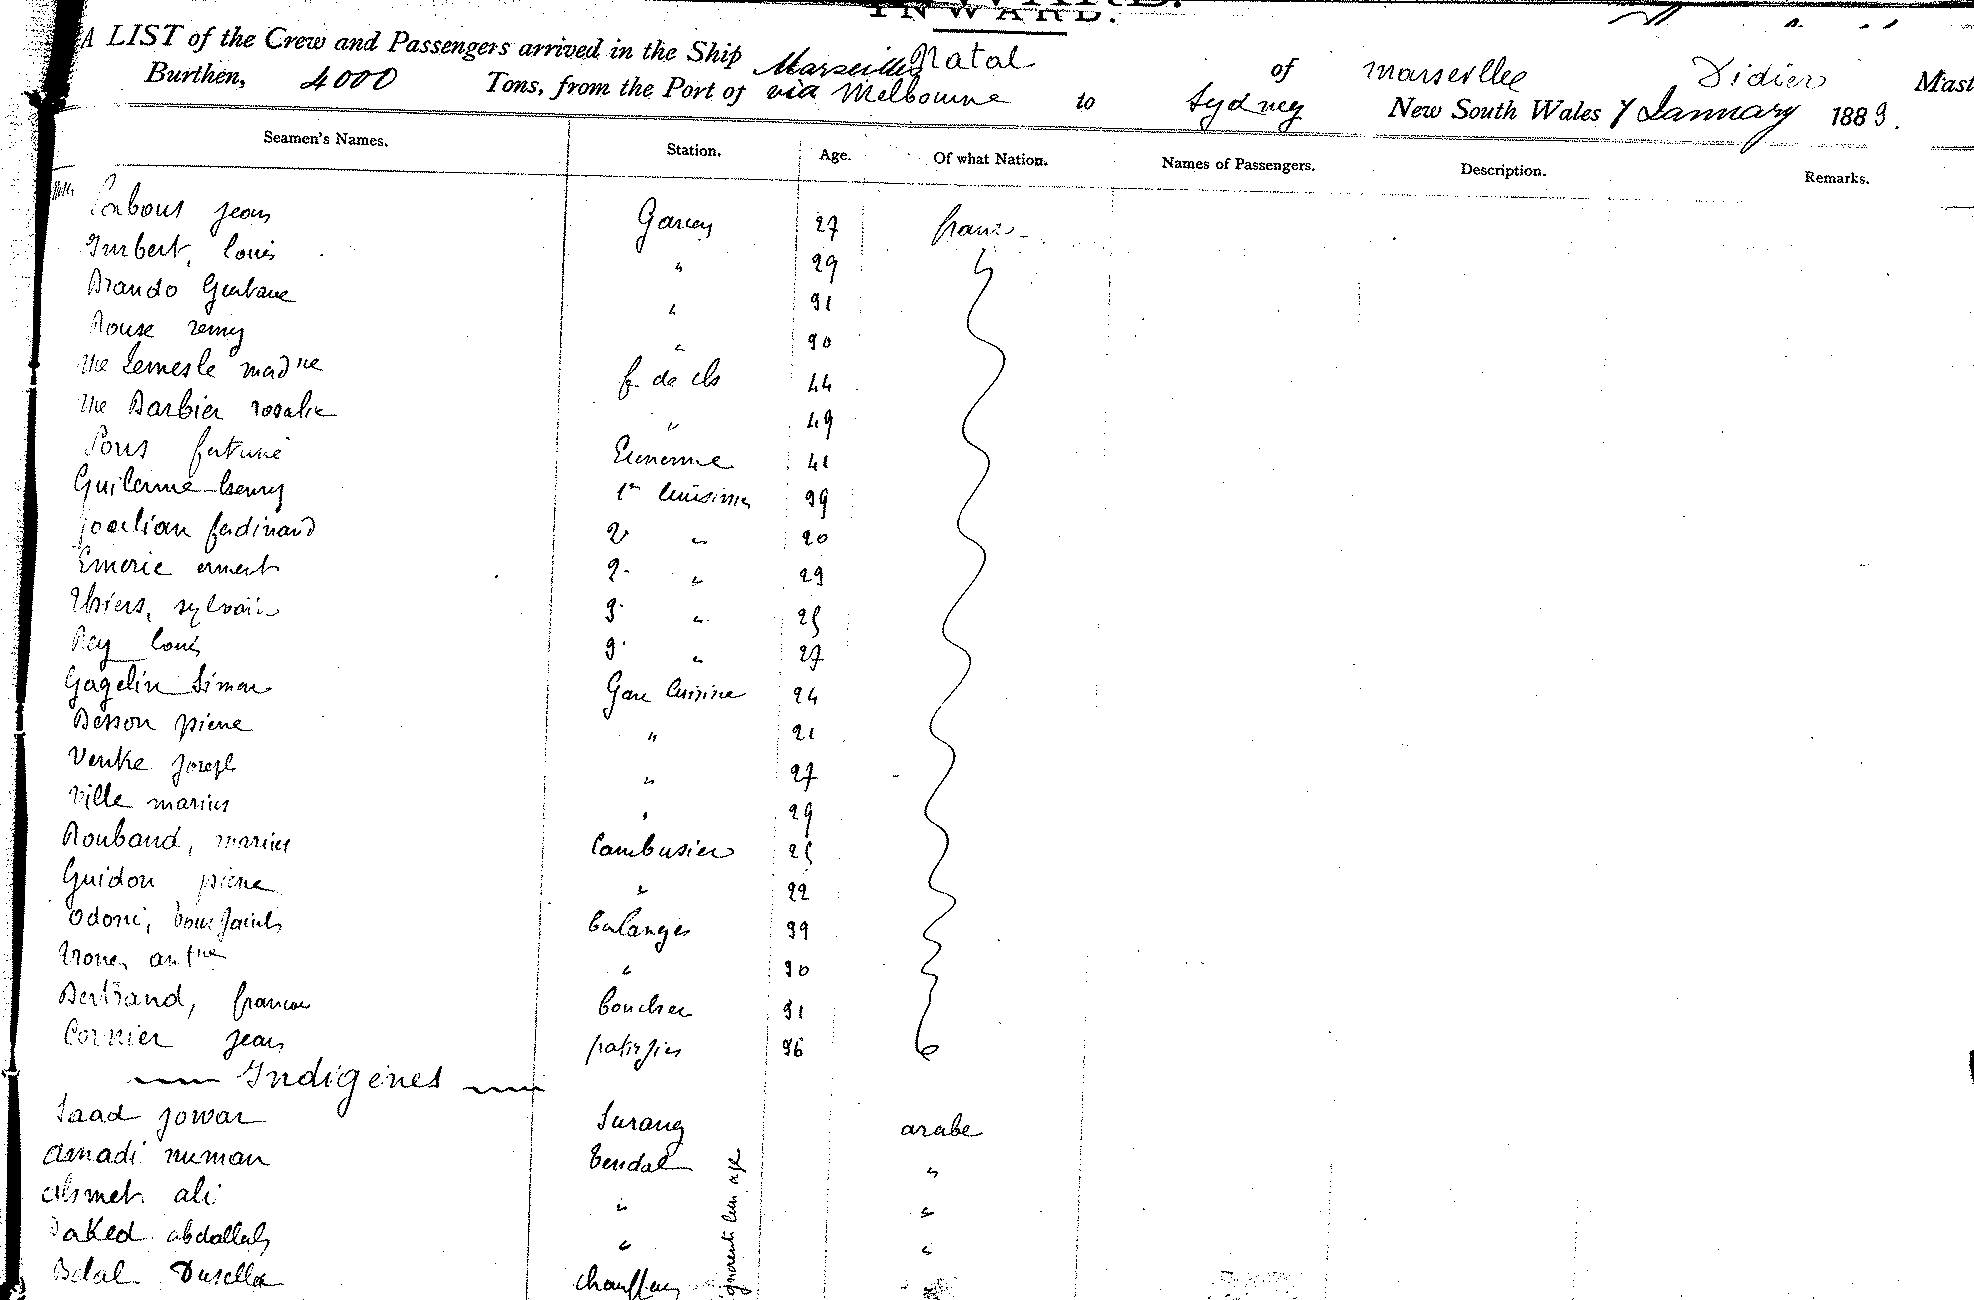 INWARD.
A LIST of the Crew and Passengers arrived in the Ship Natal of Marseilles Didier Mast
Burthen, 4000 Tons, from the Port of Marseilles via Melbourne to Sydney New South Wales 7 January 1883.
Seamen's Names. Station. Age. Of what Nation. Names of Passengers. Description. Remarks.
jean Garcon 27 franc
Imbert, louis " 29
Brando " 31
Rouse remy " 30
me Lemesle madne f. de ch 44
me Barbier rosalie " 49
Pons fortuné 41
Guilerme henry 1er Cuisinier 39
ferdinand 2 " 20
Emeric ernest 2 " 29
Thiers, sylvain 3 " 25
Rey louis 3 " 27
Gagelin Simon Gar Cuisine 24
Besson pierre " 21
Venke joseph " 27
Ville marius " 29
Roubaud, marius Cambusier 25
Guidon pierre " 22
Odoni, boulanger 39
antne " 30
Bertrand, francois boucher 31
Cornier jean patissier 36
Indigenes
Saad jowar Surang arabe
amadi numan tendal "
ahmet ali " "
Saked abdallah " "
Belal chauffeur
ignorent leur age